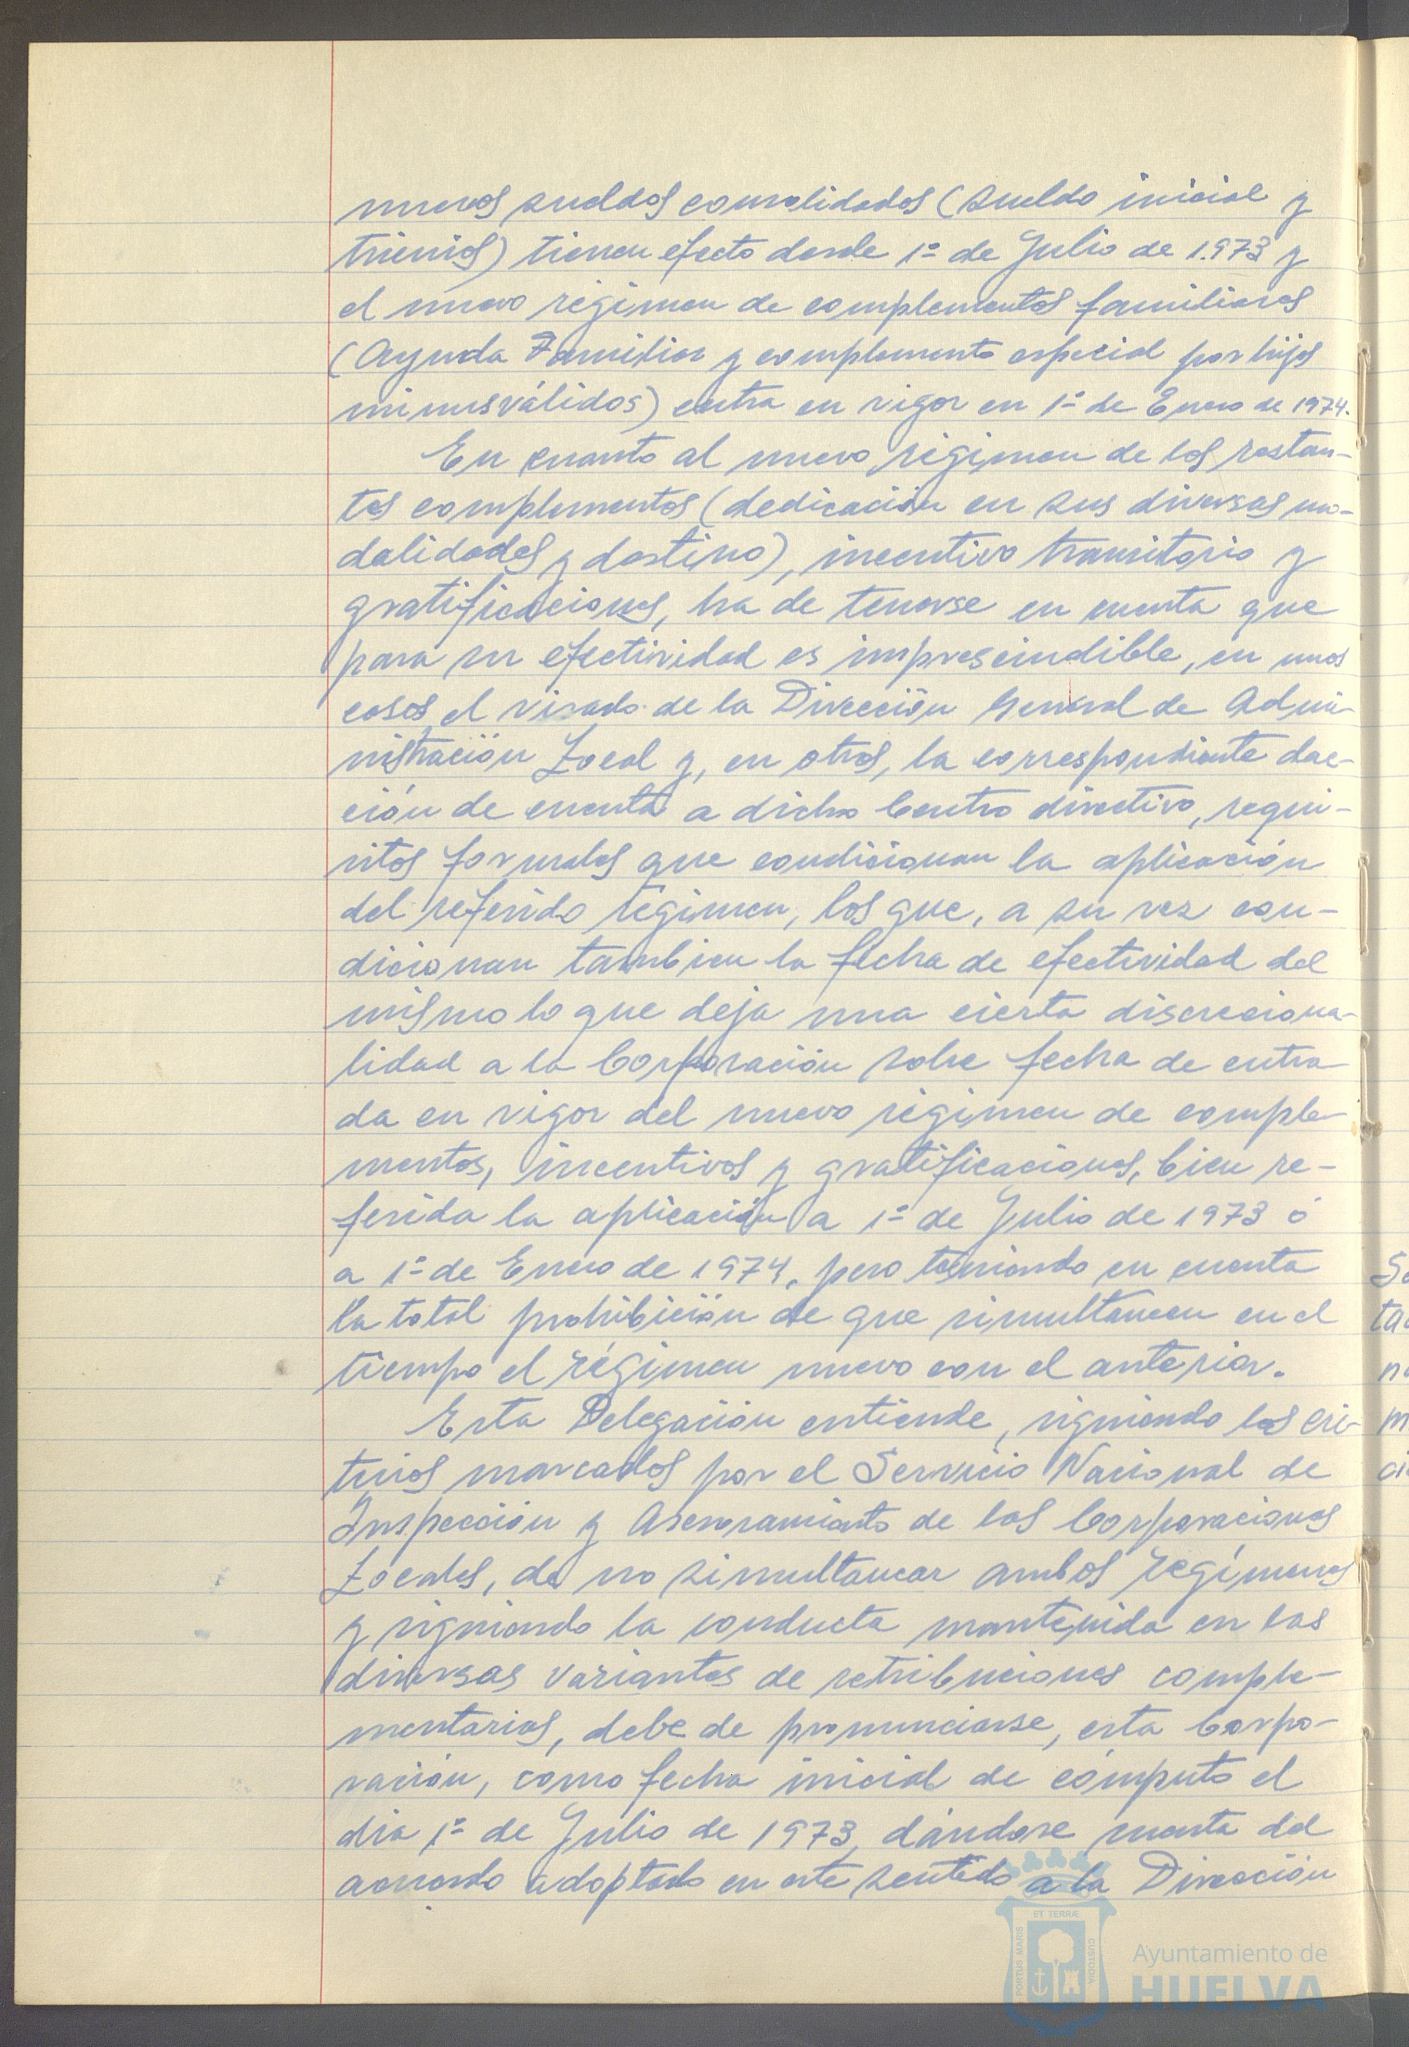 nuevos sueldos consolidados (sueldo inicial y
trienios) tienen efecto desde 1º de Julio de 1.973 y
el nuevo régimen de complementos familiares
(Ayuda Familiar y complemento especial por hijos
minusválidos) entra en vigor en 1º de Enero de 1974.
En cuanto al nuevo régimen de los restan-
tes complementos (dedicación en sus diversas mo-
dalidades y destino), incentivo transitorio y
gratificaciones, ha de tenerse en cuenta que
para su efectividad es imprescindible, en unos
casos, el visado de la Dirección General de Admi-
nistración Local y, en otros, la correspondiente dac-
ción de cuenta a dicho Centro directivo, requi-
sitos formales que condicionan la aplicación
del referido régimen, los que, a su vez con-
dicionan tambien la fecha de efectividad del
mismo lo que deja una cierta discreciona-
lidad a la Corporación sobre fecha de entra
da en vigor del nuevo régimen de comple-
mentos, incentivos y gratificaciones, bien re-
ferida la aplicación a 1º de Julio de 1973 ó
a 1º de Enero de 1974, pero teniendo en cuenta
la total prohibición de que simultaneen en el
tiempo el régimen nuevo con el anterior.
Esta Delegación entiende, siguiendo los cri-
terios marcados por el Servicio Nacional de
Inspección y Asesoramiento de las Corporaciones
Locales, de no simultanear ambos regímenes
y siguiendo la conducta mantenida en las
diversas variantes de retribuciones comple-
mentarias, debe de pronunciarse, esta Corpo-
ración, como fecha inicial de cómputo el
dia 1º de Julio de 1973, dándose cuenta del
acuerdo adoptado en este sentido a la Dirección
PORTUS MARIS ET TERRÆ CUSTODIA
Ayuntamiento de
HUELVA